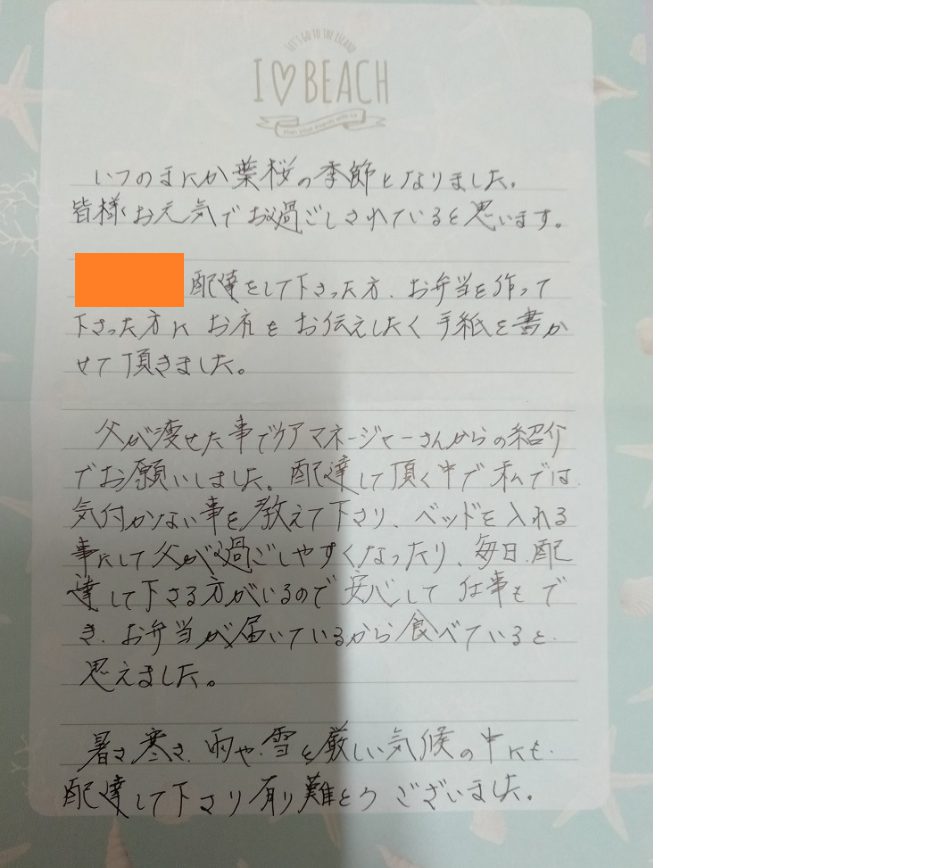 LET'S GO TO THE ISLAND
I♡BEACH
いつのまにか葉桜の季節となりました。
皆様お元気でお過ごしされていると思います。
配達をして下さった方、お弁当を作って
下さった方にお礼をお伝えしたく手紙を書か
せて頂きました。
父が痩せた事でケアマネージャーさんからの紹介
でお願いしました。配達して頂く中で私では
気付かない事を教えて下さり、ベッドを入れる
事にして父が過ごしやすくなったり、毎日、配
達して下さる方がいるので安心して仕事もで
き、お弁当が届いているから食べていると
思えました。
暑さ寒さ、雨や、雪と厳しい気候の中にも、
配達して下さり有り難とうございました。